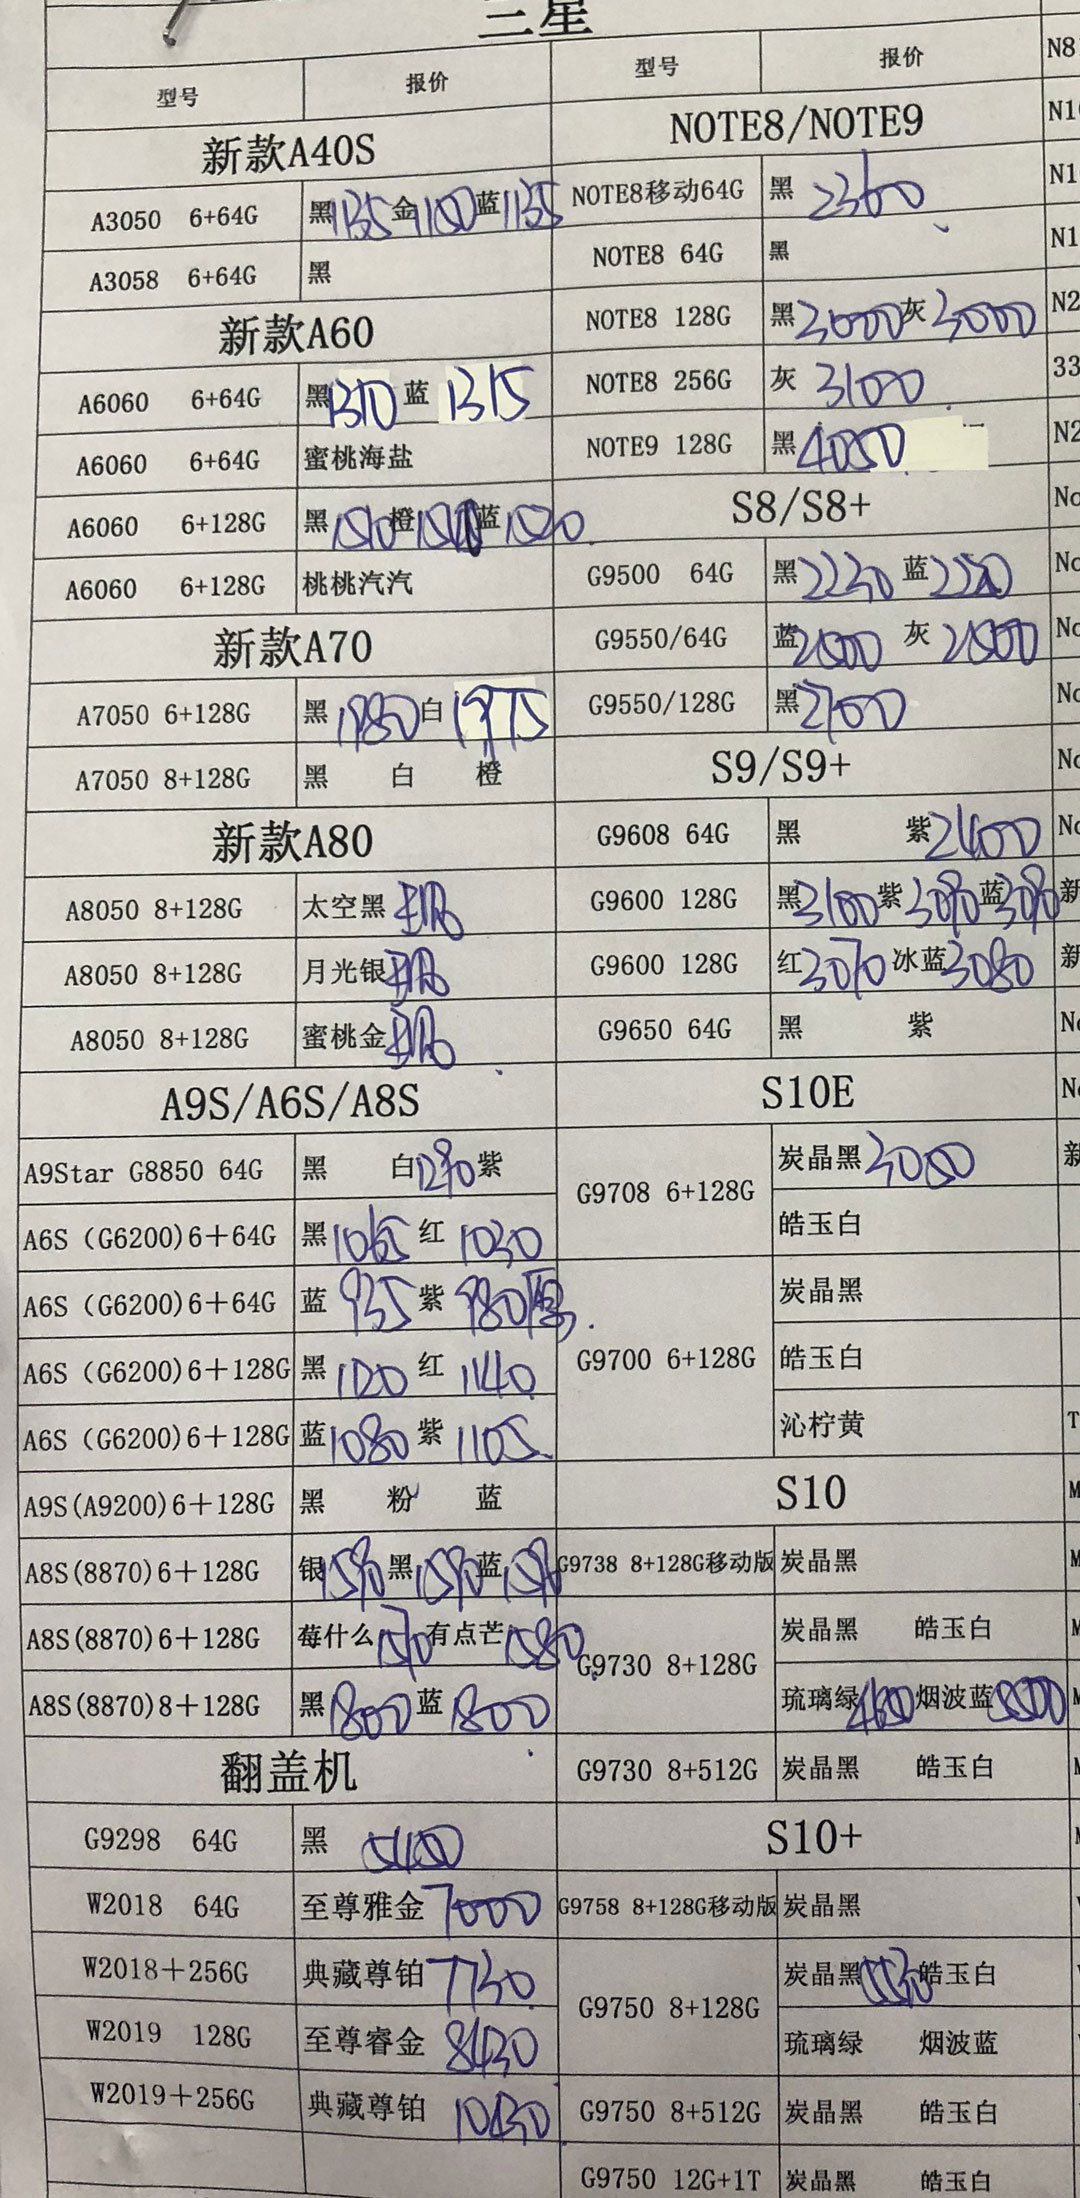 三星
型号 报价 型号 报价 N8
新款A40S NOTE8/NOTE9
A3050 6+64G 黑1135 金1100 蓝1135 NOTE8移动64G 黑 2360
A3058 6+64G 黑 NOTE8 64G 黑
新款A60 NOTE8 128G 黑3000 灰3000
A6060 6+64G 黑1310 蓝1315 NOTE8 256G 灰 3100
A6060 6+64G 蜜桃海盐 NOTE9 128G 黑4050
A6060 6+128G 黑1510 橙 蓝1520 S8/S8+
A6060 6+128G 桃桃汽汽 G9500 64G 黑2230 蓝
新款A70 G9550/64G 蓝2500 灰2500
A7050 6+128G 黑1980 白1975 G9550/128G 黑2700
A7050 8+128G 黑 白 橙 S9/S9+
新款A80 G9608 64G 黑 紫2400
A8050 8+128G 太空黑 G9600 128G 黑3100 紫3090 蓝3090
A8050 8+128G 月光银 G9600 128G 红3070 冰蓝3080
A8050 8+128G 蜜桃金 G9650 64G 黑 紫
A9S/A6S/A8S S10E
A9Star G8850 64G 黑 白1290 紫 G9708 6+128G 炭晶黑3000
A6S (G6200)6+64G 黑1065 红1030 皓玉白
A6S (G6200)6+64G 蓝 935 紫 980 炭晶黑
A6S (G6200)6+128G 黑1120 红1140 G9700 6+128G 皓玉白
A6S (G6200)6+128G 蓝1080 紫1105 沁柠黄
A9S(A9200)6+128G 黑 粉 蓝 S10
A8S(8870)6+128G 银1590 黑1590 蓝1590 G9738 8+128G移动版 炭晶黑
A8S(8870)6+128G 莓什么1570 有点芒1580 G9730 8+128G 炭晶黑 皓玉白
A8S(8870)8+128G 黑1800 蓝1800 琉璃绿 烟波蓝
翻盖机 G9730 8+512G 炭晶黑 皓玉白
G9298 64G 黑 5400 S10+
W2018 64G 至尊雅金7000 G9758 8+128G移动版 炭晶黑
W2018+256G 典藏尊铂7730 G9750 8+128G 炭晶黑5530 皓玉白
W2019 128G 至尊睿金8430 琉璃绿 烟波蓝
W2019+256G 典藏尊铂 10430 G9750 8+512G 炭晶黑 皓玉白
G9750 12G+1T 炭晶黑 皓玉白